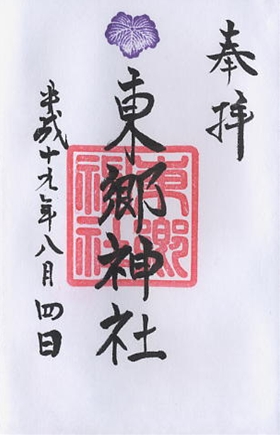 奉拝
東郷神社
東郷神社
平成十九年八月四日